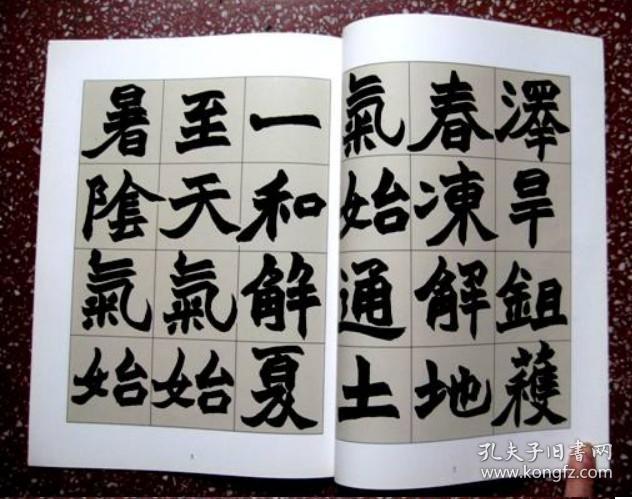 澤旱鉏穫
春凍解地
氣始通土
一和解夏
至天氣始
暑陰氣始
孔夫子旧书网
www.kongfz.com